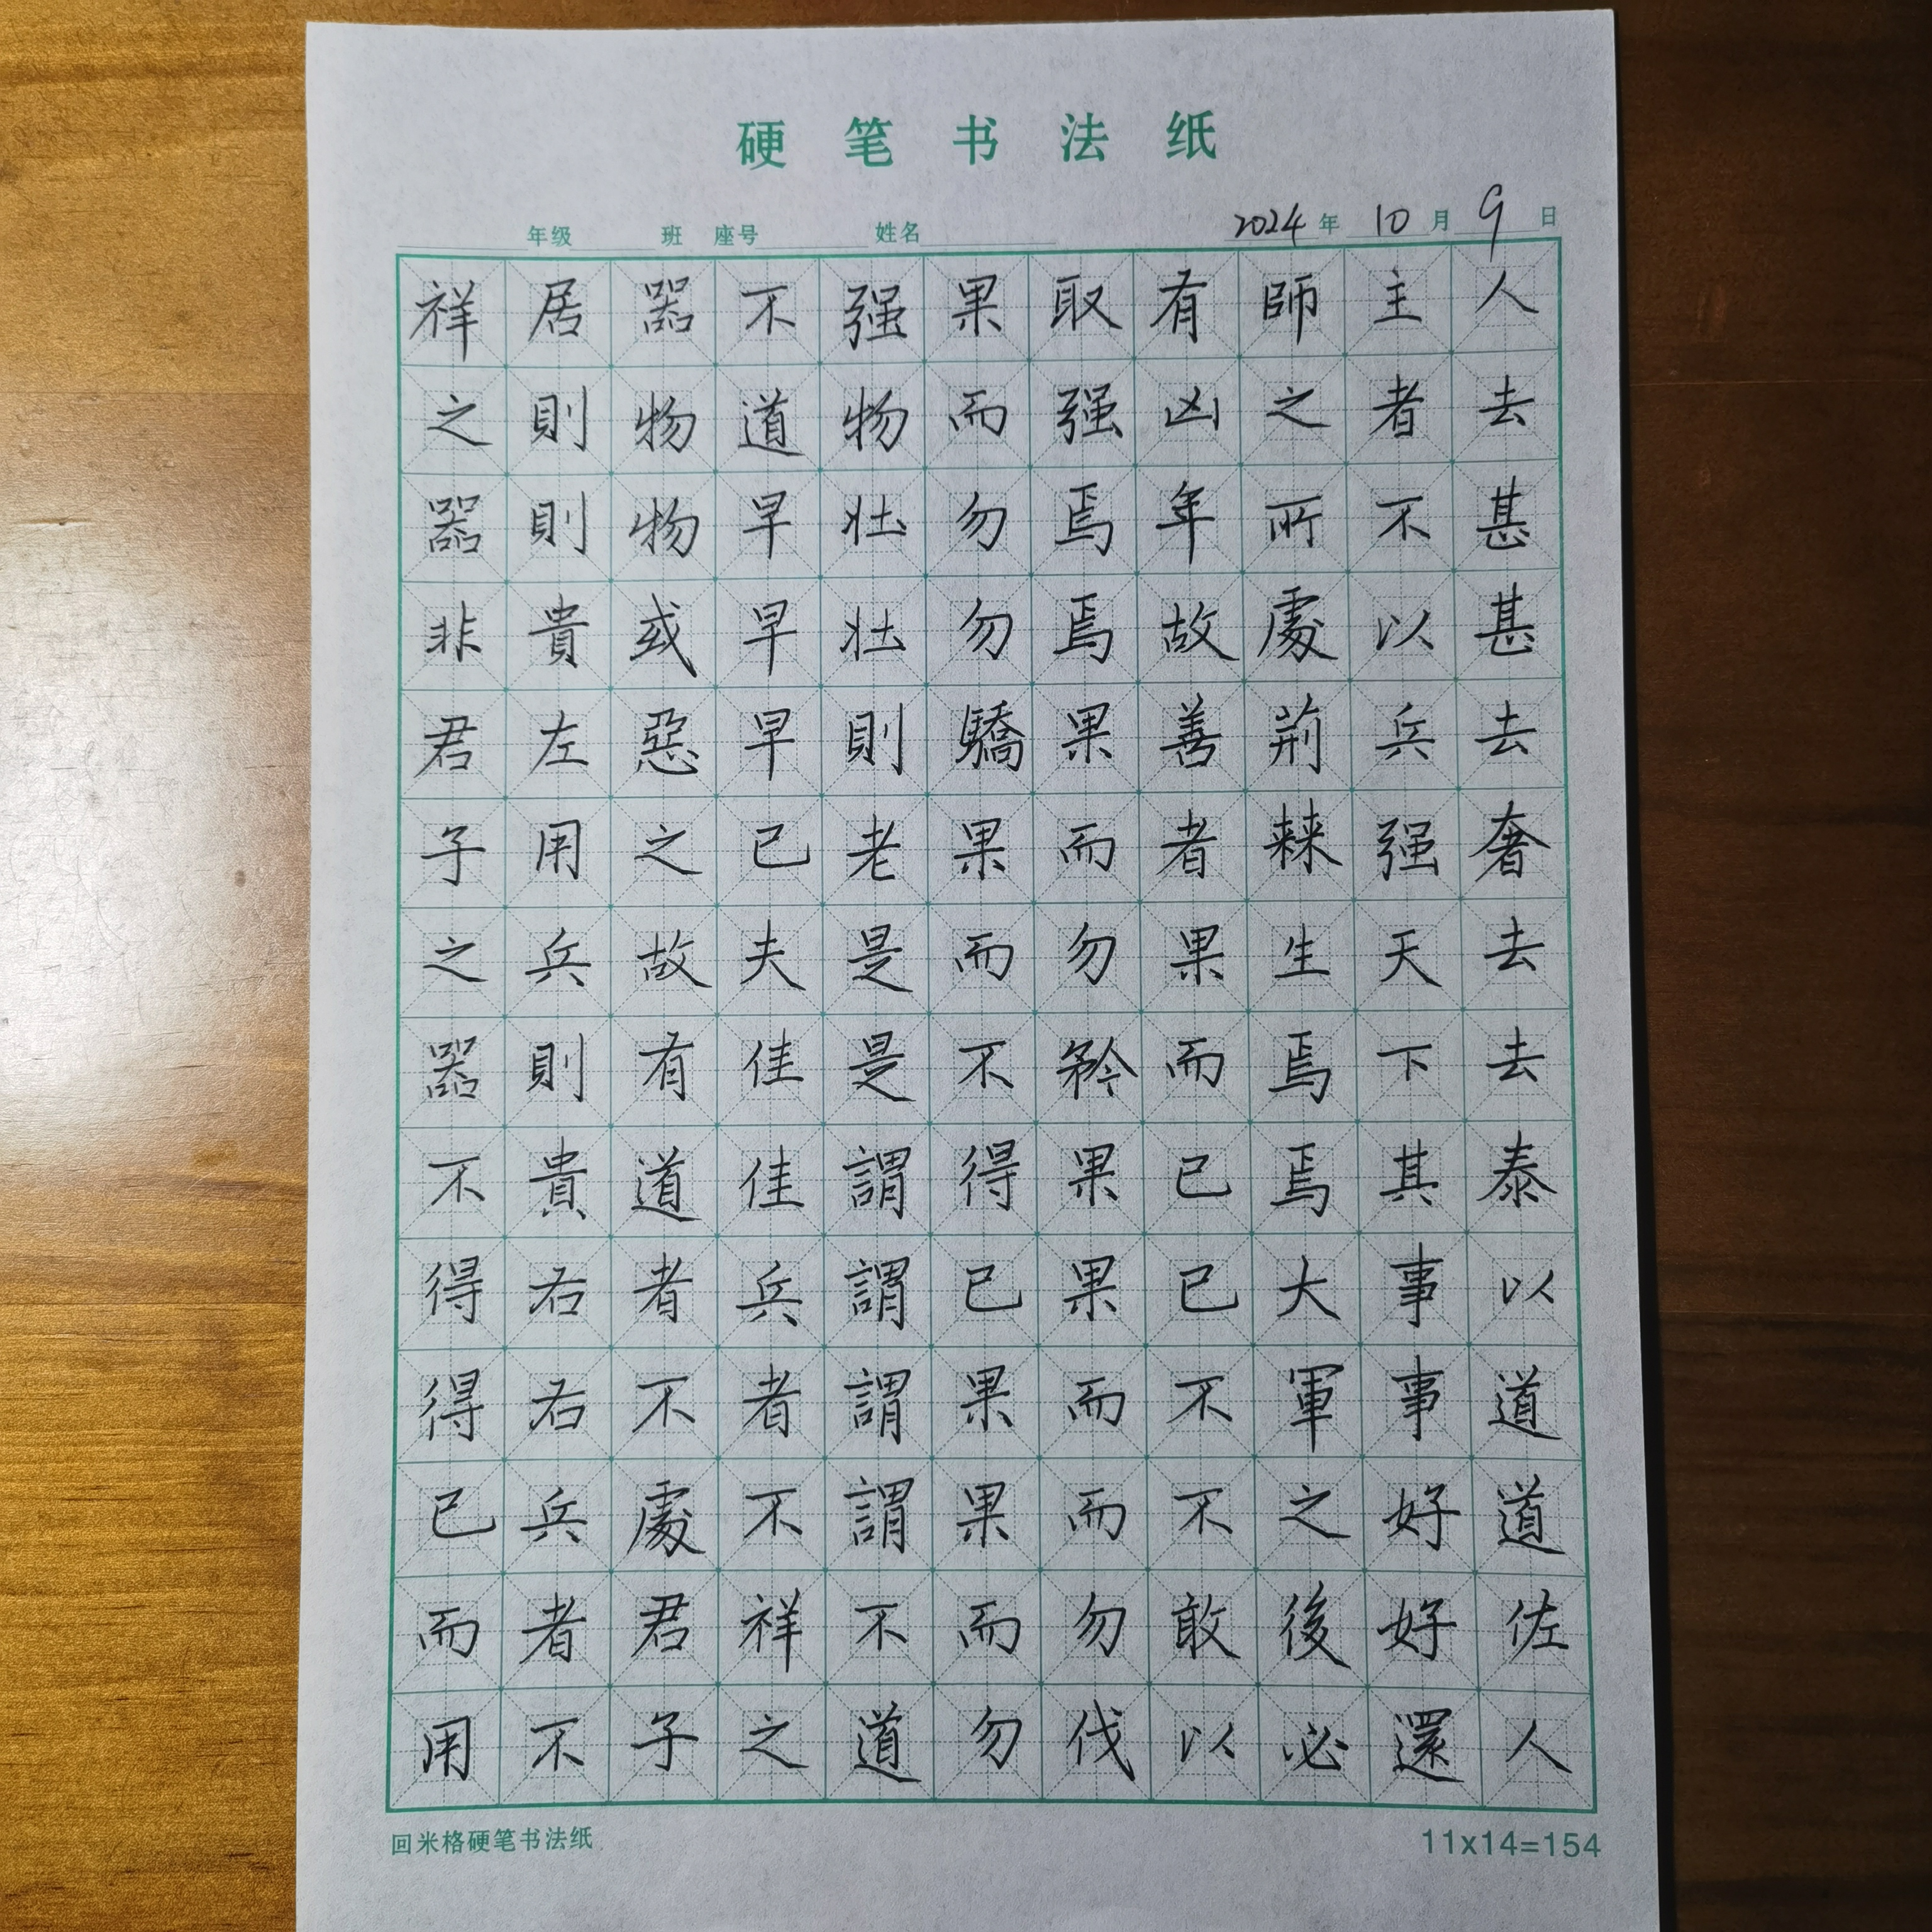 硬笔书法纸
年级 班 座号 姓名 2024年10月9日
人去甚甚去奢去去泰以道道佐人
主者不以兵强天下其事事好好還
師之所處荊棘生焉焉大軍之後必
有凶年故善者果而已已不不敢以
取强焉焉果而勿矜果果而而勿伐
果而勿勿驕果而不得已果果而勿
强物壮壮則老是是謂謂謂謂不道
不道早早早已夫佳佳兵者不祥之
器物物或惡之故有道者不處君子
居則則貴左用兵則貴右右兵者不
祥之器非君子之器不得得已而用
回米格硬笔书法纸
11x14=154